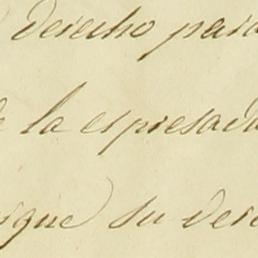 derecho para
la espresad
su dere